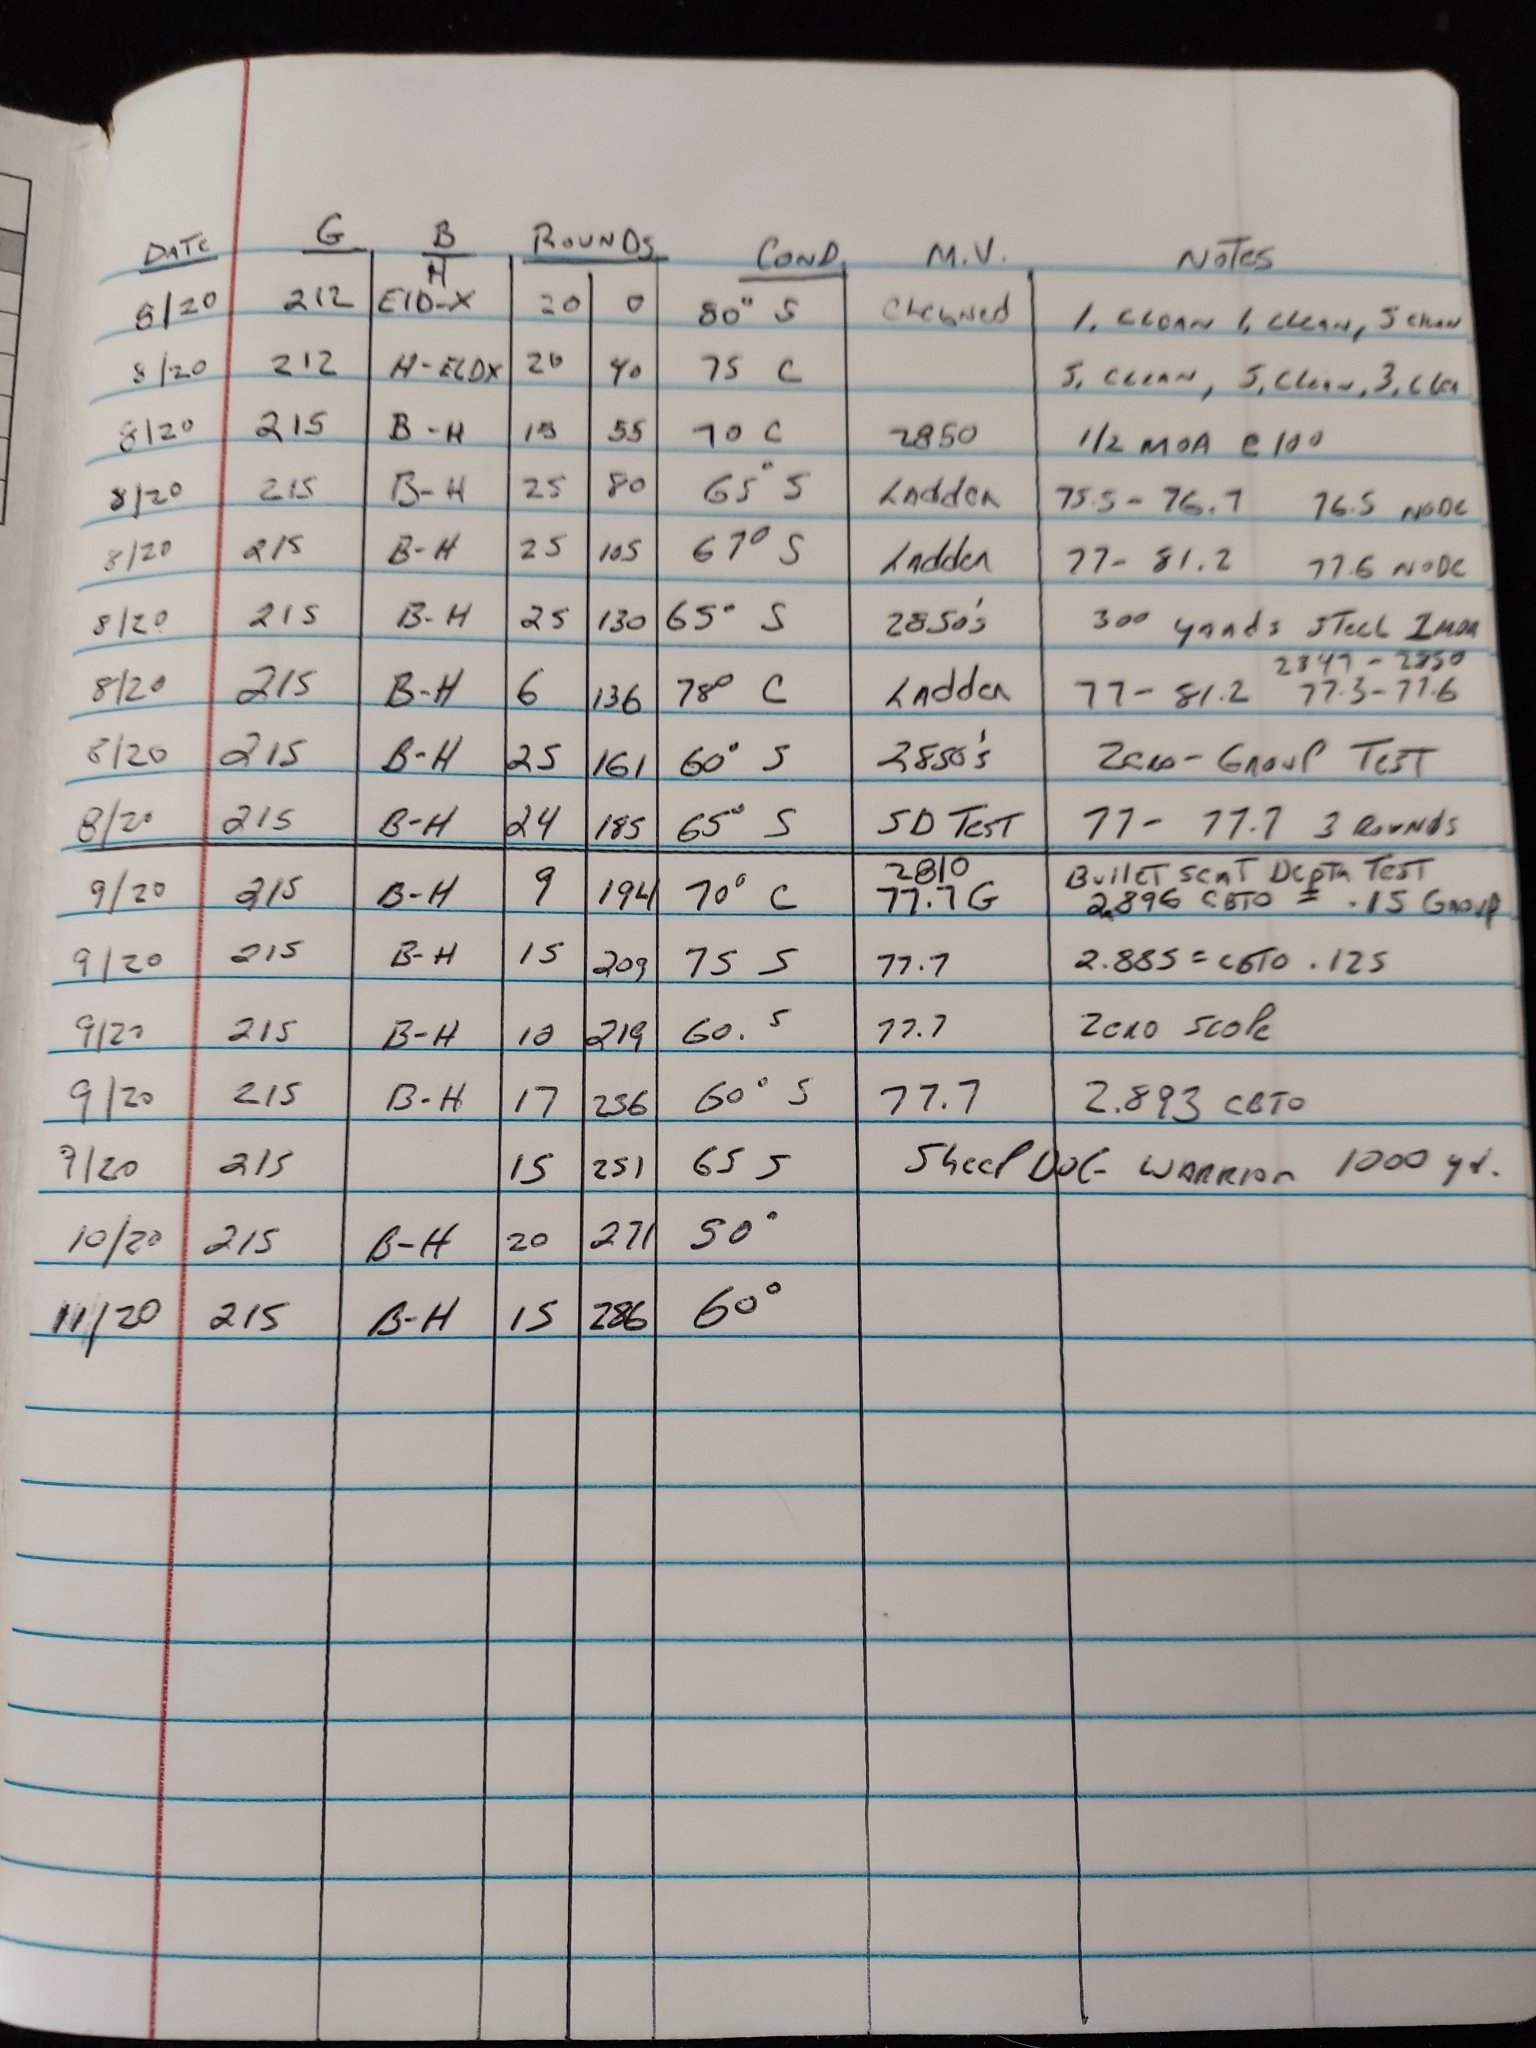 DATE G B/H ROUNDS COND. M.V. NOTES
8/20 212 ElD-X 20 0 80° S Cleaned 1, CLEAN 1, CLEAN, 5 CLEAN
8/20 212 H-ELDX 20 40 75 C 5, CLEAN, 5, CLEAN, 3, CLEA
8/20 215 B-H 15 55 70 C 2850 1/2 MOA @ 100
8/20 215 B-H 25 80 65° S Ladder 75.5-76.7 76.5 NODE
8/20 215 B-H 25 105 67° S Ladder 77-81.2 77.6 NODE
8/20 215 B-H 25 130 65° S 2850's 300 yards Steel 1 MOA
2847-2850
8/20 215 B-H 6 136 78° C Ladder 77-81.2 77.3-77.6
8/20 215 B-H 25 161 60° S 2850's Zero-Group Test
8/20 215 B-H 24 185 65° S SD Test 77-77.7 3 Rounds
2810 Bullet Seat Depth Test
9/20 215 B-H 9 194 70° C 77.7 G 2.896 CBTO = .15 Group
9/20 215 B-H 15 209 75 S 77.7 2.885 = CBTO .125
9/20 215 B-H 10 219 60. S 77.7 Zero Scope
9/20 215 B-H 17 236 60° S 77.7 2.893 CBTO
9/20 215 15 251 65 S Sheep DOG WARRIOR 1000 yd.
10/20 215 B-H 20 271 50°
11/20 215 B-H 15 286 60°